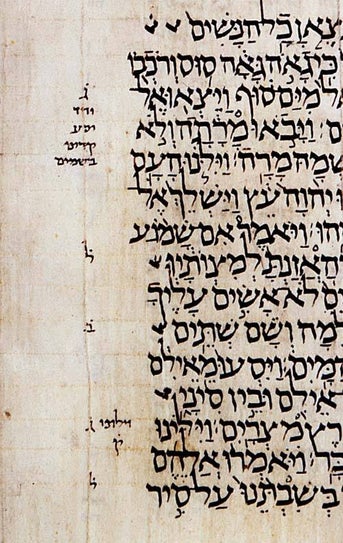 צֶאןָ כָל הַנָּשִׁים
כִּי גָאֹה גָּאָה סוּס וְרֹכְבוֹ
ל מִיַּם סוּף וַיֵּצְאוּ אֶל
ם וַיָּבֹאוּ מָרָתָה וְלֹא
שְׁמָהּ מָרָה וַיִּלֹּנוּ הָעָם
יְהוָה עֵץ וַיַּשְׁלֵךְ אֶל
הוּ וַיֹּאמֶר אִם שָׁמוֹעַ
וְהַאֲזַנְתָּ לְמִצְוֹתָיו
ם לֹא אָשִׂים עָלֶיךָ
לִמָה וְשָׁם שְׁתֵּים
הַמָּיִם וַיִּסְעוּ מֵאֵילִם
אֵילִם וּבֵין סִינָי
רֶץ מִצְרָיִם וַיִּלִּינוּ
בָּר וַיֹּאמְרוּ אֲלֵהֶם
בְּשִׁבְתֵּנוּ עַל סִיר
ג
יסע
בשמים
ל
ב
וילונו ג
ק
ל